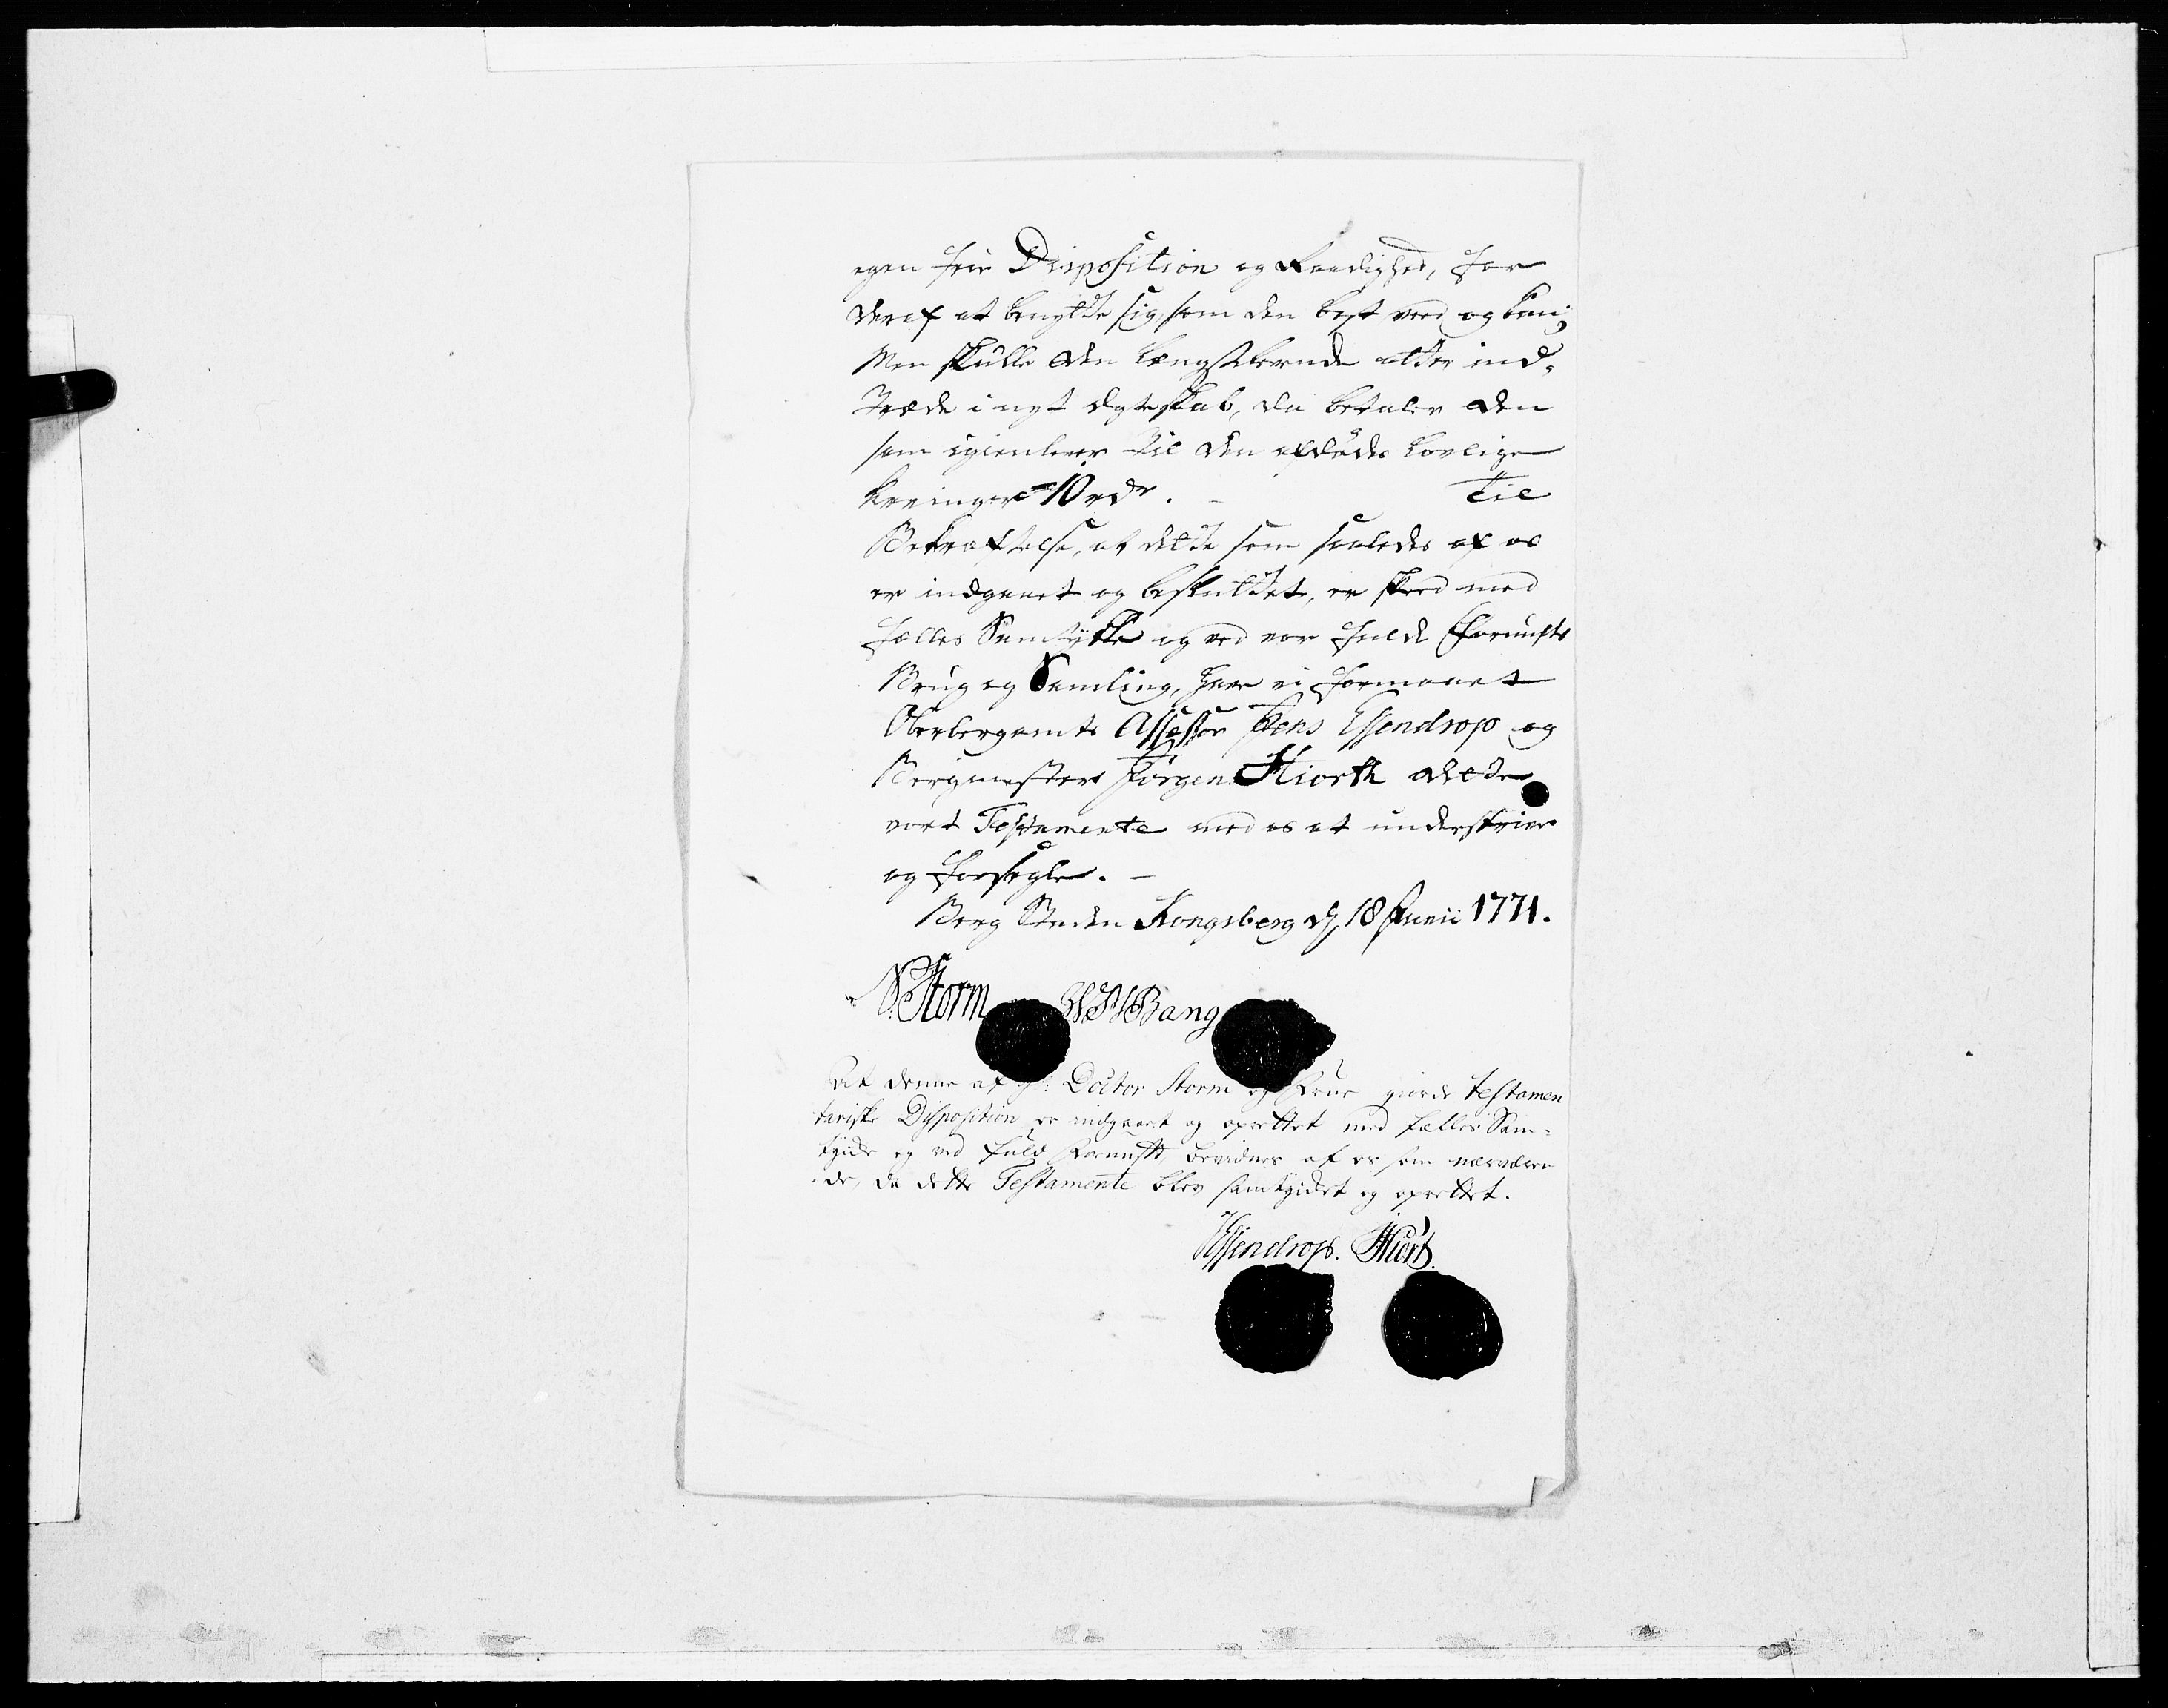 egen frie Disposition og Raadighed, for
deraf at benytte sig, som den best veed og kan;
Men skulle den længstlevende atter ind-
træde i nyt Ægteskab, da betaler den
som igienlever til den afdødes lovlige
Arvinger 10 rdr. Til
Bekræftelse, at dette som saaledes af os
er indgaaet og besluttet, er skeed med
fælles Samtykke og ved vor fulde Fornufts
Brug og Samling, have vi formaaet
Oberbergamts Assessor Jens Essendrop og
Bergmester Jörgen Hiorth dette
vort Testamente med os at underskrive
og forsegle. -
Berg Staden Kongsberg d 18 Junii 1771.
N: Storm Bang
At denne af Hr: Doctor Storm og Frue giorde testamen
tariske Disposition er indgaaet og oprettet med fælles Sam-
tykke og ved fuld Fornuft, bevidnes af os som nærværen
de, da dette Testamente blev samtykt og oprettet.
Essendrop. Hiort.